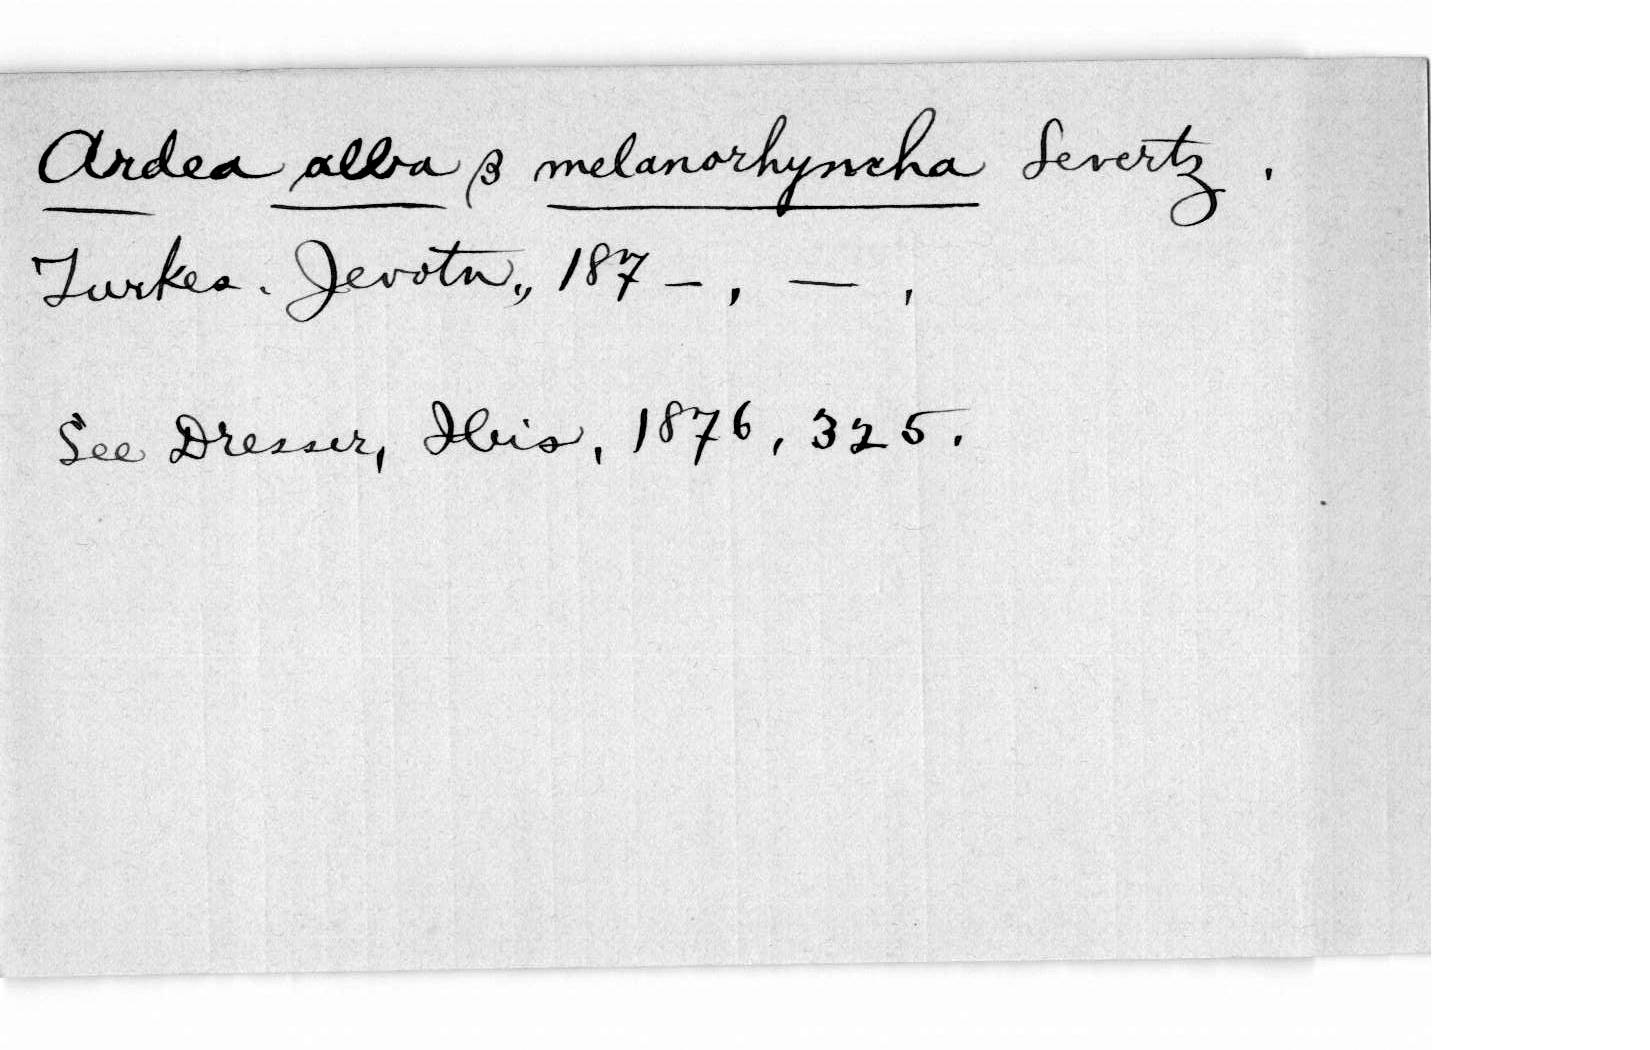 Ardea alba β melanorhyncha Severtz.
Turkes. Jevotn., 187-, —,
See Dresser, Ibis, 1876, 325.